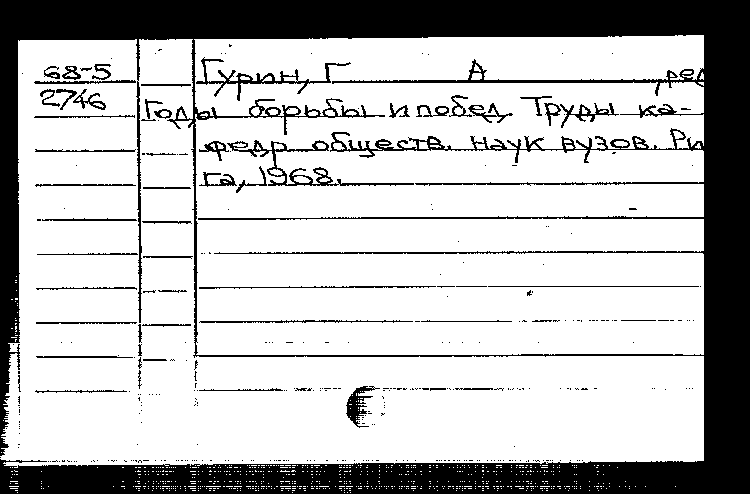 68-5 Гурин, Г А , ред
2746 Годы борьбы и побед. Труды ка-
федр обществ. наук вузов. Ри
га, 1968.